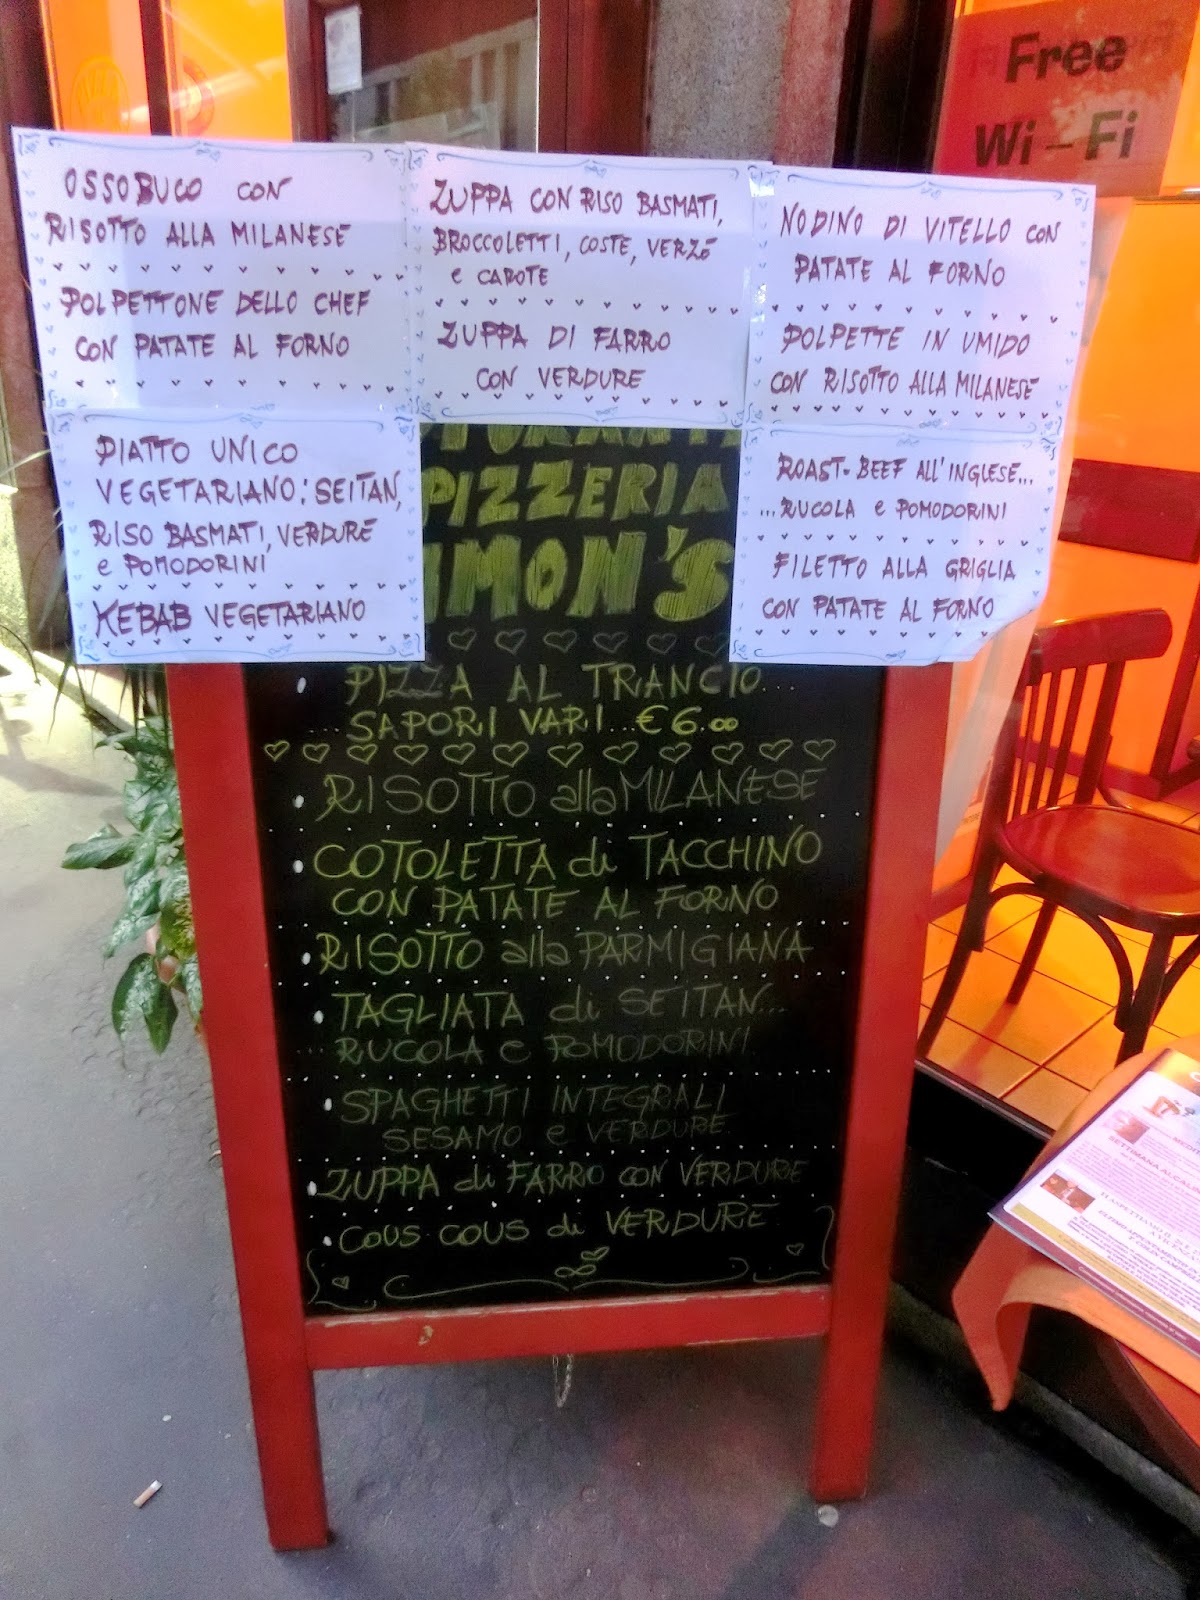 Free
Wi-Fi
OSSOBUCO CON
RISOTTO ALLA MILANESE
POLPETTONE DELLO CHEF
CON PATATE AL FORNO
ZUPPA CON RISO BASMATI,
BROCCOLETTI, COSTE, VERZE
e CAROTE
ZUPPA DI FARRO
CON VERDURE
NODINO DI VITELLO CON
PATATE AL FORNO
POLPETTE IN UMIDO
CON RISOTTO ALLA MILANESE
PIATTO UNICO
VEGETARIANO: SEITAN,
RISO BASMATI, VERDURE
e POMODORINI
KEBAB VEGETARIANO
ROAST-BEEF ALL'INGLESE...
...RUCOLA e POMODORINI
FILETTO ALLA GRIGLIA
CON PATATE AL FORNO
PIZZERIA
IMON'S
PIZZA AL TRANCIO...
...SAPORI VARI...€6.00
RISOTTO alla MILANESE
COTOLETTA di TACCHINO
CON PATATE AL FORNO
RISOTTO alla PARMIGIANA
TAGLIATA di SEITAN...
...RUCOLA e POMODORINI
SPAGHETTI INTEGRALI
SESAMO e VERDURE
ZUPPA di FARRO CON VERDURE
COUS COUS di VERDURE
SETTIMANA ALCAL